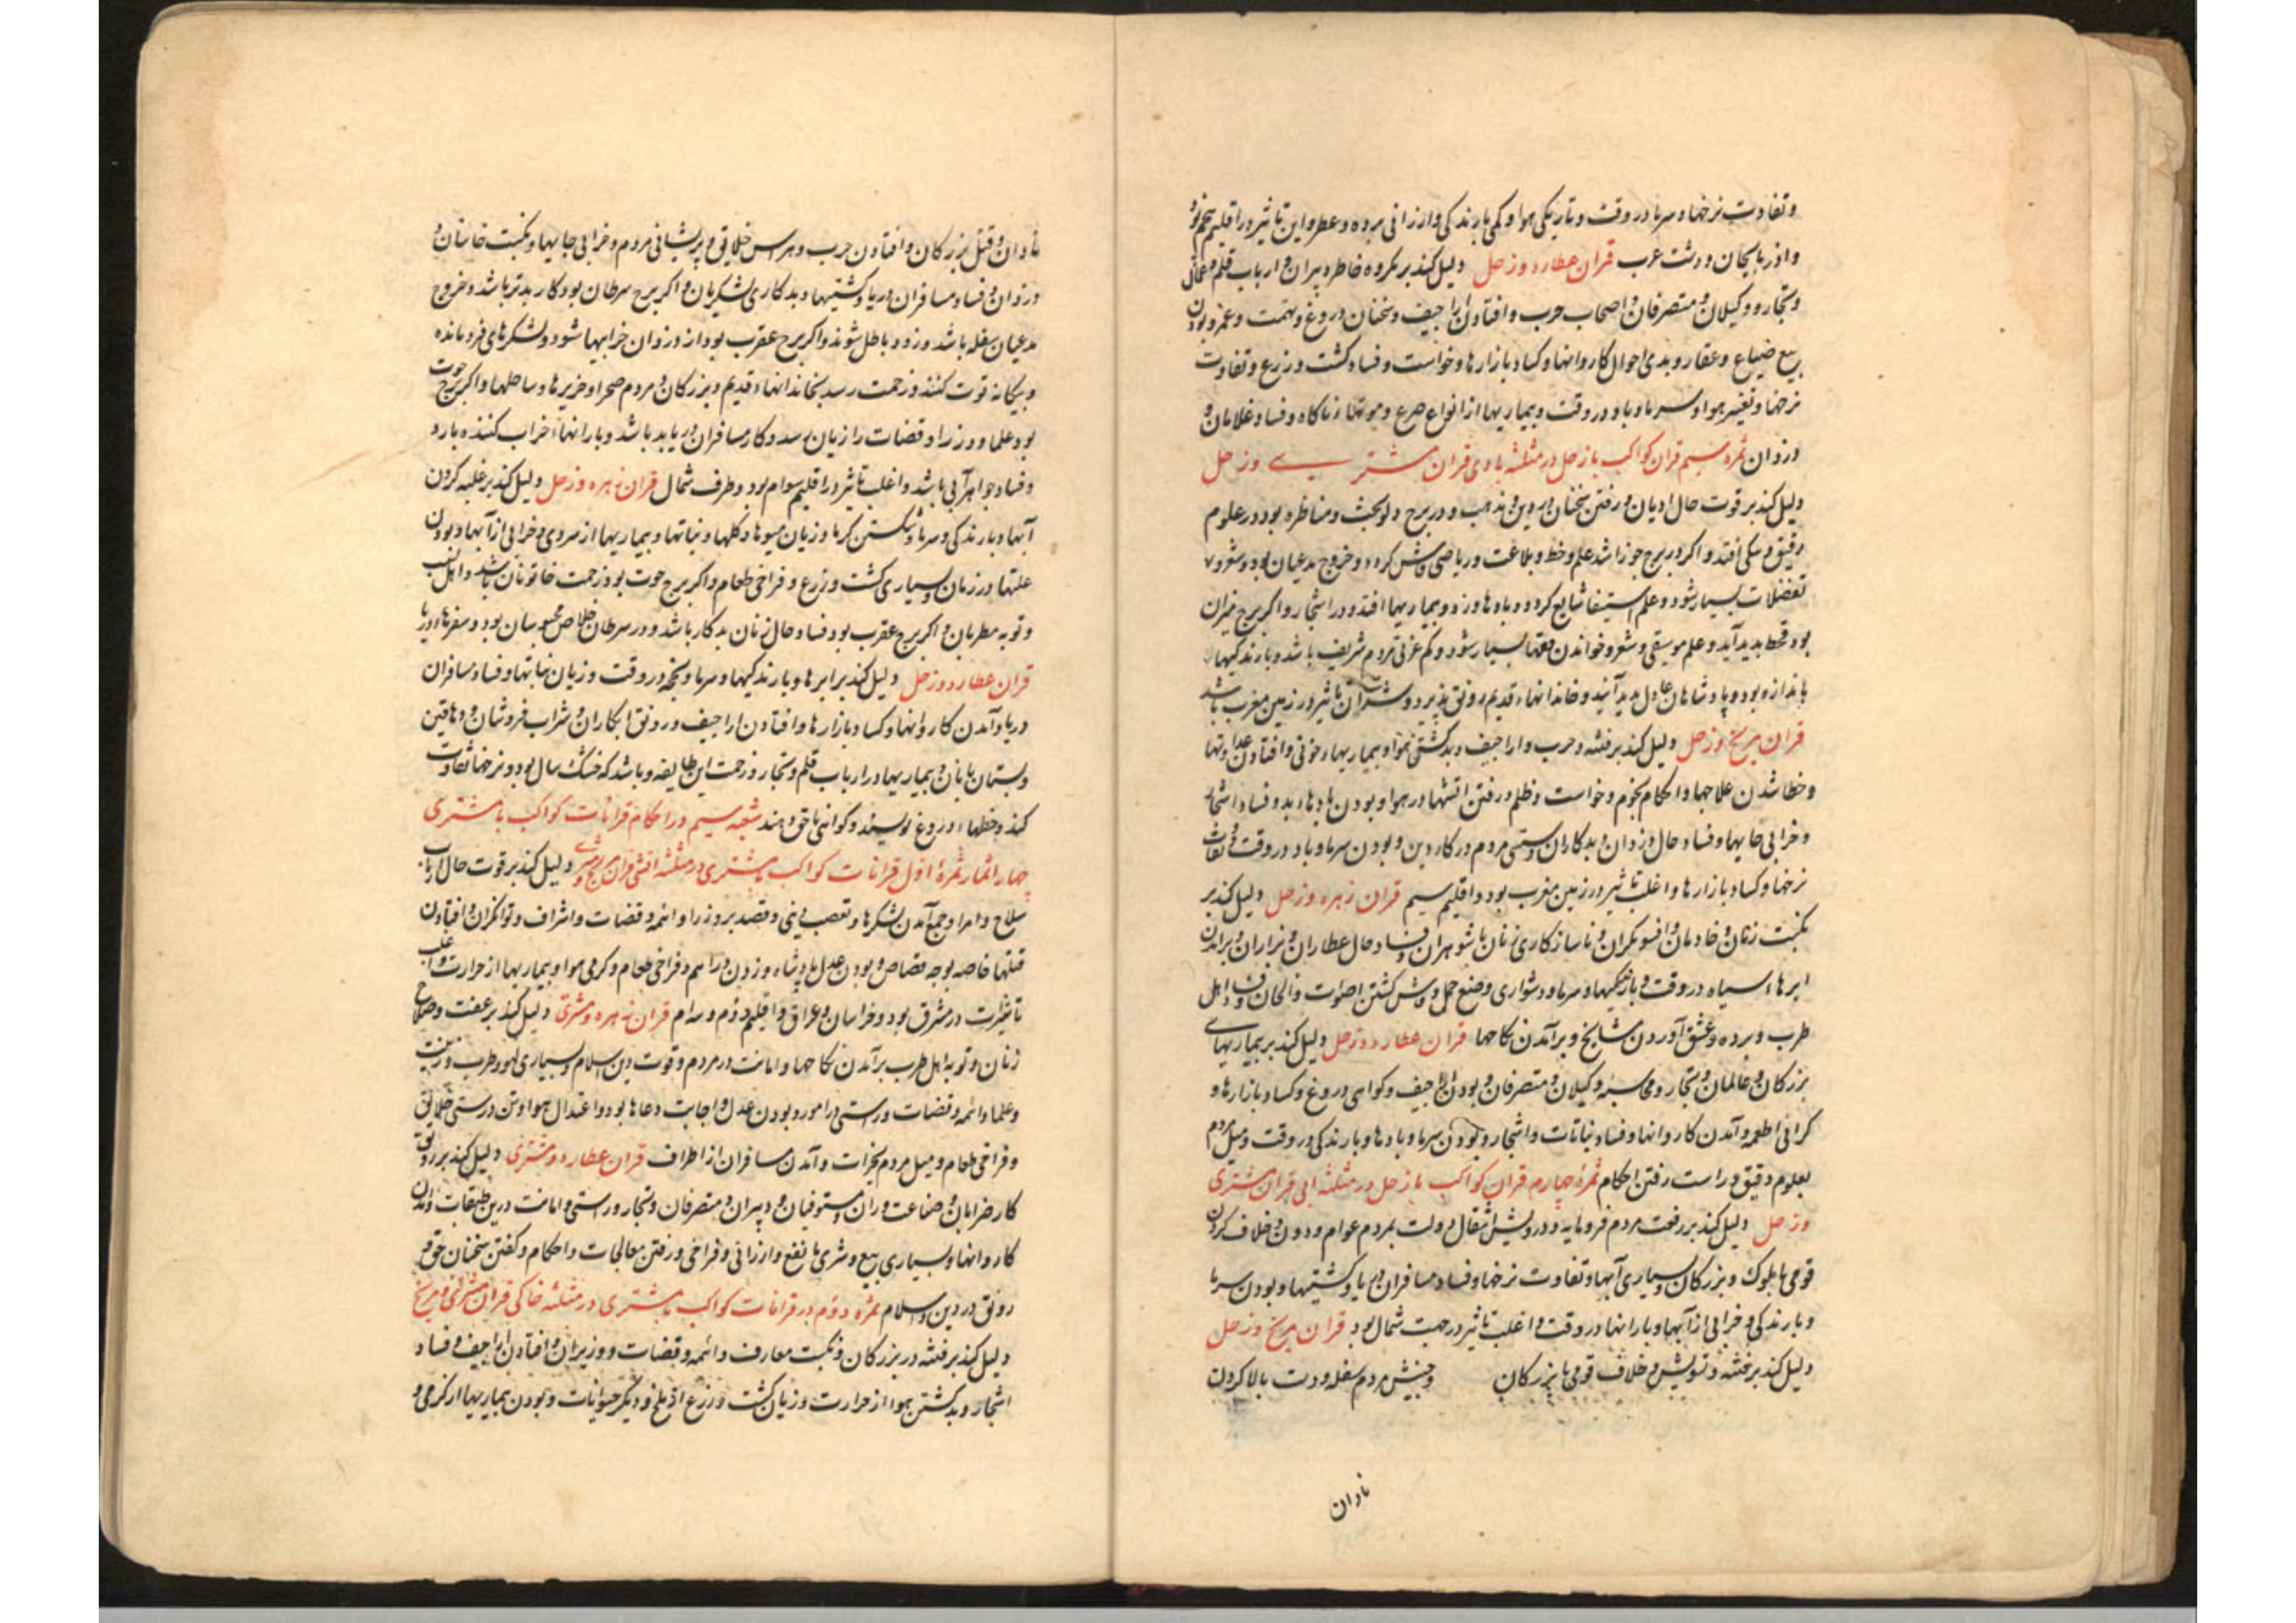 و تفاوت نرخها و سرما در وقت و تاریکی هوا و کمی بارندکی و ارزانی برده و عطر و این تاثیر در اقلیم پنجم بود
و اذربایجان و دشت عرب قران عطارد و زحل دلیل کند بر مکروه خاطر دبیران و ارباب قلم و عمال
و تجار و وکیلان و متصرفان و اصحاب حرب و افتادن اراجیف و سخنان دروغ و تهمت و غمز و بودن
بیع ضیاع و عقار و بدی احوال کاروانها و کساد بازارها و خواست و فساد کشت و زرع و تفاوت
نرخها و تغییر هوا و سرما و باد در وقت و بیماریها از انواع صرع و موتهاء ناکاه و فساد غلامان و
دزدان ثمره سیم قران کواکب با زحل در مثلثه بادی قران مشتری و زحل
دلیل کند بر قوت حال ادیان و رفتن سخنان در دین و مذهب و در برج دلو بحث و مناظره بود در علوم
دقیق و اکر در برج جوزا باشد علم و خط و بلاغت و ریاضی فاش کردد و خروج مدعیان بود و شعر و
تفضلات بسیار شود و علم استیفا شایع کردد و بادها وزد و بیماریها افتد و در اشجار و اکر برج میزان
بود قحط پدید آید و علم موسیقی و شعر و خواندن بسیار شود و کم عزتی مردم شریف باشد و بارندکیها
باندازه بود و پادشاهان عادل پدید آیند و خاندانهاء قدیم رونق پذیرد و بیشتر آن تاثیر در زمین مغرب باشد
قران مریخ و زحل دلیل کند بر فتنه و حرب و اراجیف و بد کشتن هوا و بیماریهاء خونی و افتادن عداوتها
و خطا شدن علاجها و احکام نجوم و خواست و ظلم و رفتن اتشها در هوا و بودن بادهاء بد و فساد اشجار
و خرابی جایها و فساد حال دزدان و بدکاران و سستی مردم در کار دین و بودن سرما و باد در وقت و تفاوت
نرخها و کساد بازارها و اغلب تاثیر در زمین مغرب بود و اقلیم سیم قران زهره و زحل دلیل کند بر
نکبت زنان و خادمان و افسونکران و ناسازکاری زنان با شوهران و فساد حال عطاران و بزازان و برآمدن
ابرهاء سیاه در وقت و بارندکیها و سرما و دشواری وضع حمل و فاش کشتن اصوات و الحان و اهل
طرب و برده و عشق آوردن مشایخ و برآمدن نکاحها قران عطارد و زحل دلیل کند بر بیماریهای
بزرکان و عالمان و تجار و محاسبه وکیلان و متصرفان و بودن اراجیف و کواهی دروغ و کساد بازارها و
کرانی اطعمه و آمدن کاروانها و فساد نباتات و اشجار و بودن سرما و بادها و بارندکی در وقت و میل مردم
بعلوم دقیق و راست رفتن احکام ثمره چهارم قران کواکب با زحل در مثلثه ابی قران مشتری
و زحل دلیل کند بر رفعت مردم فرومایه و درویش و انتقال دولت بمردم عوام و دون و خلاف کردن
قومی با ملوک و بزرکان و بسیاری آبها و تفاوت نرخها و فساد مسافران دریا و کشتیها و بودن سرما
و بارندکی و خرابی از آبها و بارانها در وقت و اغلب تاثیر در جهت شمال بود قران مریخ و زحل
دلیل کند بر فتنه و تشویش و خلاف قومی با بزرکان و جنبش مردم سفله و دست بالا کردن
نادان
نادان و قتل بزرکان و افتادن حرب و هراس خلایق و پریشانی مردم و خرابی جایها و نکبت خاینان و
دزدان و فساد مسافران دریا و کشتیها و بدکاری لشکریان و اکر برج سرطان بود کار بدتر باشد و خروج
مدعیان سفله باشد و زود باطل شوند و اکر برج عقرب بود از دزدان خرابیها شود و لشکرهای فرومانده
و بیکانه قوت کنند و زحمت رسد بخاندانهاء قدیم و بزرکان و مردم صحرا و جزیرها و ساحلها و اکر برج حوت
بود علما و وزرا و قضات را زیان رسد و کار مسافران دریا بد باشد و بارانهاء خراب کننده بارد
و فساد جواهر آبی باشد و اغلب تاثیر در اقلیم سوم بود و طرف شمال قران زهره و زحل دلیل کند بر غلبه کردن
آبها و بارندکی و سرما و شکستن کرما و زیان میوها و کلها و نباتها و بیماریها از سردی و خرابی از آبها و بودن
علتها در زمان و بسیاری کشت و زرع و فراخی طعام و اکر برج حوت بود زحمت خاتونان باشد و اهل نسب
و توبه مطربان و اکر برج عقرب بود فساد حال زنان بدکار باشد و در سرطان خلاص محبوسان بود و سفرها از دریا
قران عطارد و زحل دلیل کند بر ابرها و بارندکیها و سرما و یخ در وقت و زیان نباتها و فساد مسافران
دریا و آمدن کاروانها و کساد بازارها و افتادن اراجیف و رونق ابکاران و شراب فروشان و دهاقین
و بستان بانان و بیماریها در ارباب قلم و تجار و زحمت این طایفه و باشد که خشک سال بود و نرخها تفاوت
کند و خطهاء دروغ نویسند و کواهی ناحق دهند شعبه سیم در احکام قرانات کواکب با مشتری
چهار اثمار ثمرهٔ اول قرانات کواکب با مشتری در مثلثه اتشی قران مریخ و مشتری دلیل کند بر قوت حال ارباب
سلاح و امرا و جمع آمدن لشکرها و تعصب دینی و قصد بر وزرا و ائمه و قضات و اشراف و توانکران و افتادن
فتنها خاصه بوجه قصاص و بودن عدل پادشاه و زدن دراهم و فراخی طعام و کرمی هوا و بیماریها از حرارت و اغلب
تاثیرات در مشرق بود و خراسان و عراق و اقلیم دوم و سوم قران زهره و مشتری دلیل کند بر عفت و صلاح
زنان و توبه اهل طرب برآمدن نکاحها و امانت در مردم و قوت دین اسلام و بسیاری لهو و طرب و زینت
و علما و ائمه و قضات و راستی در امور و بودن عدل و اجابت دعاها بود و اعتدال هوا و تن درستی خلایق
و فراخی طعام و میل مردم بخیرات و آمدن مسافران از اطراف قران عطارد و مشتری دلیل کند بر رونق
کار ضرابان و صناعت وران و مستوفیان و دبیران و متصرفان و تجار و راستی و امانت درین طبقات و آمدن
کاروانها و بسیاری بیع و شری با نفع و ارزانی و فراخی و رفتن معالجات و احکام و کفتن سخنان حق و
رونق در دین اسلام ثمره دوم در قرانات کواکب با مشتری در مثلثه خاکی قران مشتری و مریخ
دلیل کند بر فتنه در بزرکان و نکبت معارف و ائمه و قضات و وزیران و افتادن اراجیف و فساد
اشجار و بد کشتن هوا از حرارت و زیان کشت و زرع از ملخ و دیکر حیوانات و بودن بیماریها از کرمی و